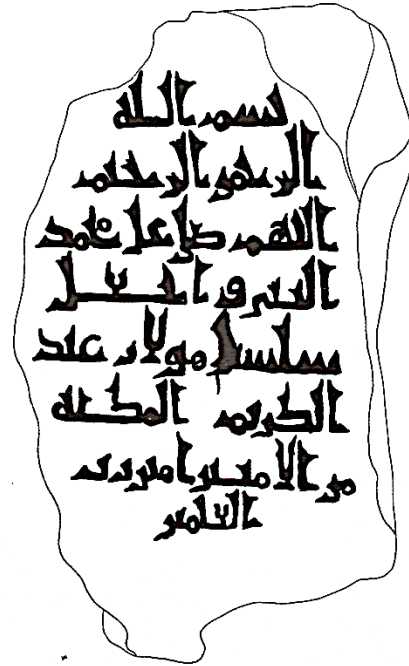 بسم الله
الرحمن الرحيم
اللهم صل على محمد
النبي و اجعل
سلسبيل عبد
الكريم المكية
من الامنين امين رب
العلمين